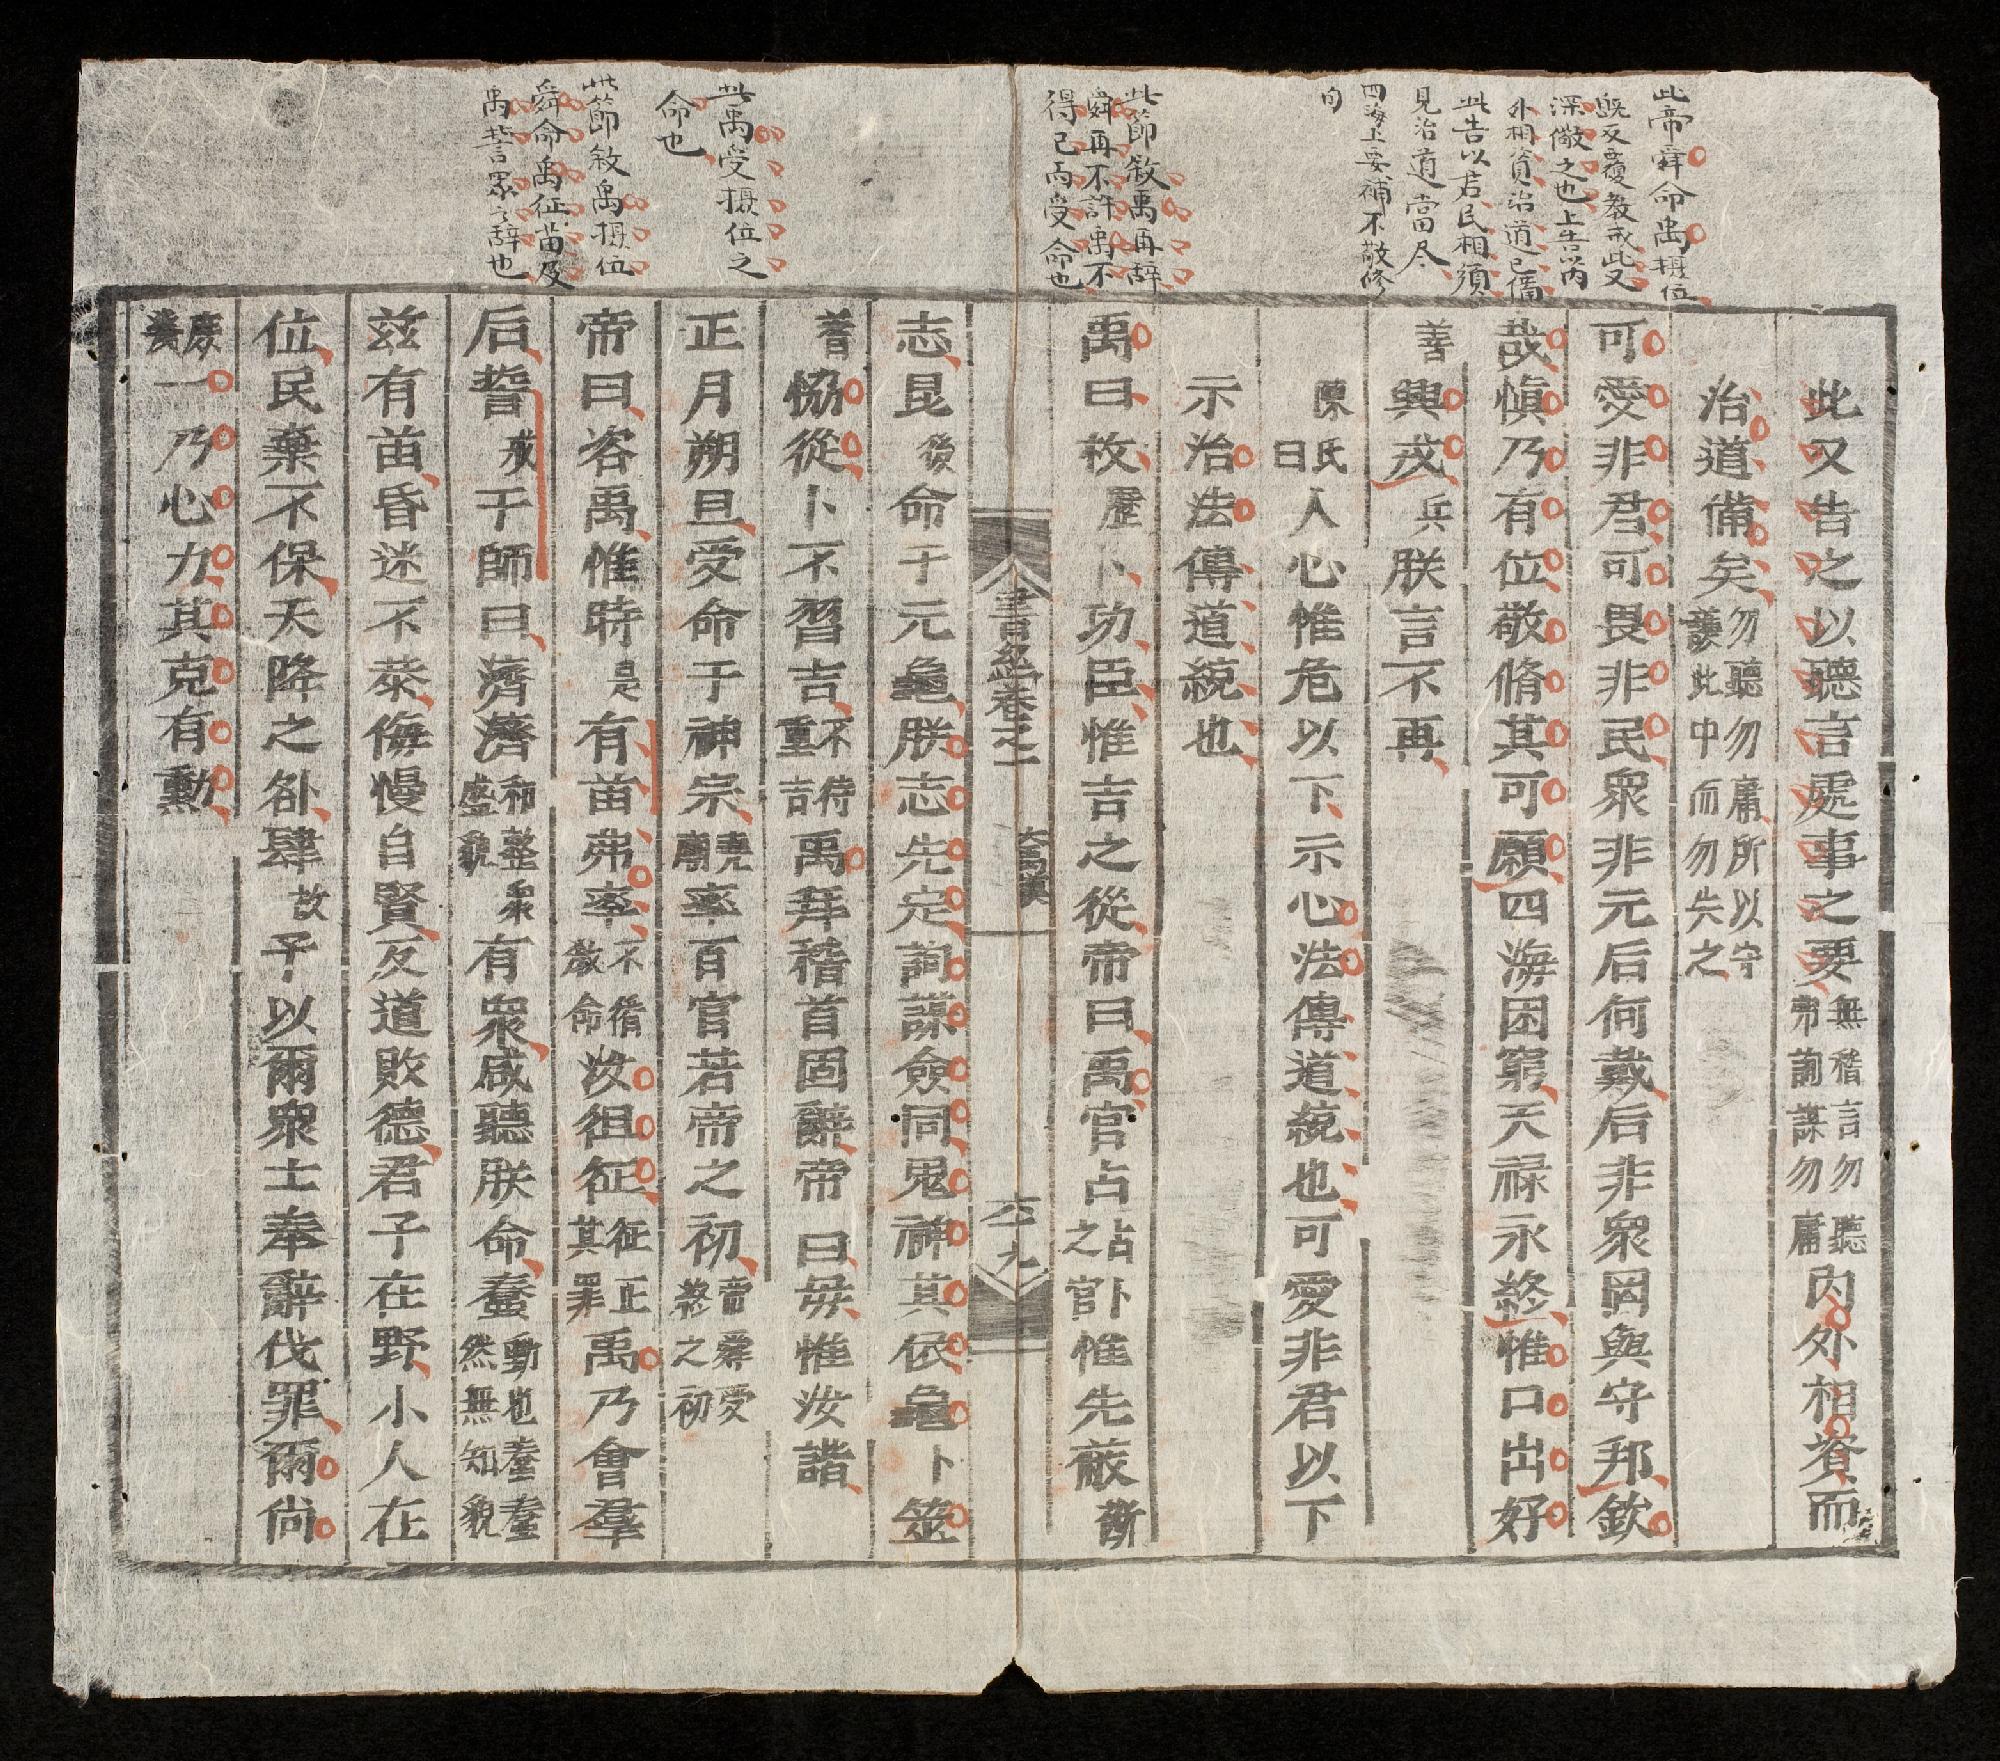 此帝舜命禹摂位
既反覆教戒此又
深儆之也上告以内
外相資治道已備
此告以君民相須
見治道當尽
四海上要補不敬修
向
此節敘禹再辞
舜再不許禹不
得已而受命也
此禹受摂位之
命也
此節敘禹摂位
舜命禹征苗及
禹誓眾之辞也
此又告之以聽言處事之要無稽言勿聽弗詢謀勿庸内外相資而
治道備矣勿聽勿庸所以守護此中而勿失之
可愛非君可畏非民衆非元后何戴后非衆罔與守邦欽
哉愼乃有位敬脩其可願四海困窮天禄永終惟口出好
善興戎兵朕言不再
陳氏曰人心惟危以下示心法傳道統也可愛非君以下
示治法傳道統也
禹曰枚歷卜功臣惟吉之從帝曰禹官占占卜之官惟先蔽斷
書經卷之一
大禹謨
六九
志昆後命于元龜朕志先定詢謀僉同鬼神其依龜卜筮
蓍恊從卜不習吉不待重吉禹拜稽首固辭帝曰毋惟汝諧
正月朔旦受命于神宗堯廟率百官若帝之初帝舜受終之初
帝曰咨禹惟時是有苗弗率不循教命汝徂征征正其罪禹乃會羣
后誓戒于師曰濟濟和整衆盛貌有衆咸聽朕命蠢動也蠢蠢然無知貌
茲有苗昏迷不恭侮慢自賢反道敗德君子在野小人在
位民棄不保天降之咎肆故予以爾衆士奉辭伐罪爾尚
庶幾一乃心力其克有勳